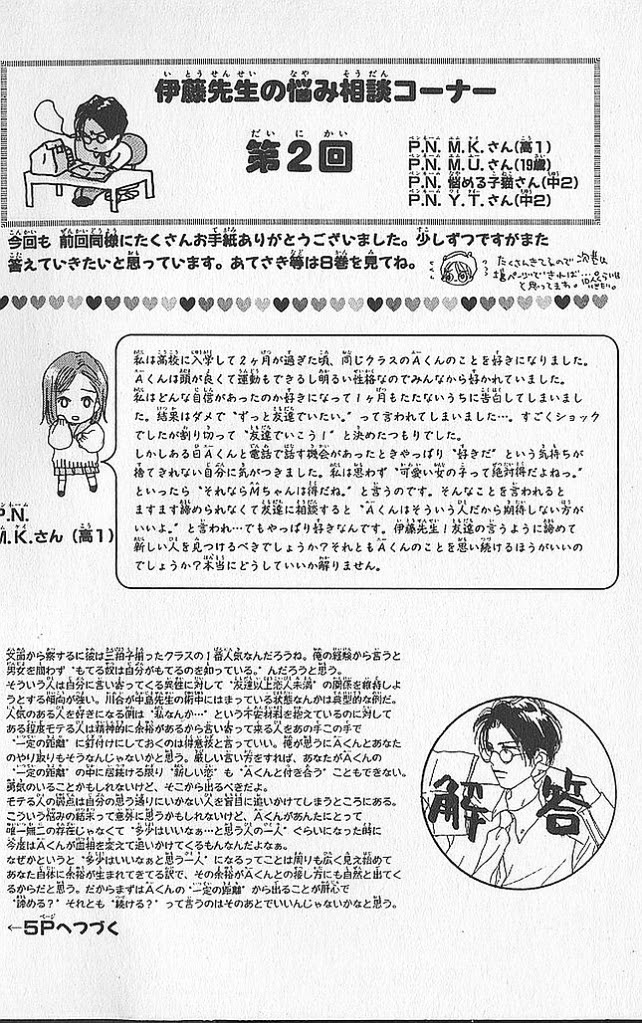 伊藤先生の悩み相談コーナー
第2回
P.N. M.K.さん(高1)
P.N. M.U.さん(19歳)
P.N. 悩める子猫さん(中2)
P.N. Y.T.さん(中2)
今回も 前回同様にたくさんお手紙ありがとうございました。少しずつですがまた
答えていきたいと思っています。あてさき等は8巻を見てね。
たくさんきてるので次巻は
増ページできれば…。
と思ってます。10人くらいはいきたい。
私は高校に入学して2ヶ月が過ぎた頃、同じクラスのAくんのことを好きになりました。
Aくんは頭が良くて運動もできるし明るい性格なのでみんなから好かれていました。
私はどんな自信があったのか好きになって1ヶ月もたたないうちに告白してしまいまし
た。結果はダメで“ずっと友達でいたい。”って言われてしまいました…。すごくショック
でしたが割り切って“友達でいこう!”と決めたつもりでした。
しかしある日Aくんと電話で話す機会があったときやっぱり“好きだ”という気持ちが
捨てきれない自分に気がつきました。私は思わず“可愛い女の子って絶対得だよねっ。”
といったら“それならMちゃんは得だね。”と言うのです。そんなことを言われると
ますます諦められなくて友達に相談すると“Aくんはそういう人だから期待しない方が
いいよ。”と言われ…でもやっぱり好きなんです。伊藤先生!友達の言うように諦めて
新しい人を見つけるべきでしょうか?それともAくんのことを思い続けるほうがいいの
でしょうか?本当にどうしていいか解りません。
P.N.
M.K.さん(高1)
文面から察するに彼は三拍子揃ったクラスの1番人気なんだろうね。俺の経験から言うと
男女を問わず“もてる奴は自分がもてるのを知っている。”んだろうと思う。
そういう人は自分に言い寄ってくる異性に対して“友達以上恋人未満”の関係を維持しよ
うとする傾向が強い。川合が中島先生の術中にはまっている状態なんかは典型的な例だ。
人気のある人を好きになる側は“私なんか…”という不安材料を抱えているのに対して
ある程度モテる人は精神的に余裕があるから言い寄って来る人をあの手この手で
“一定の距離”に釘付けにしておくのは得意技と言っていい。俺が思うにAくんとあなた
のやり取りもそうなんじゃないかと思う。厳しい言い方をすれば、あなたがAくんの
“一定の距離”の中に居続ける限り“新しい恋”も“Aくんと付き合う”こともできない。
勇気のいることかもしれないけど、そこから出るべきだよ。
モテる人の弱点は自分の思う通りにいかない人を盲目に追いかけてしまうところにある。
こういう悩みの結末って意外に思うかもしれないけど、Aくんがあんたにとって
唯一無二の存在じゃなくて“多少はいいなぁ…と思う人の一人”ぐらいになった時に
今度はAくんが血相を変えて追いかけてくるもんなんだよなぁ。
なぜかというと“多少はいいなぁと思う一人”になってことは周りも広く見え始めて
あなた自体に余裕が生まれてきてる訳で、その余裕がAくんとの接し方にも自然と出てく
るからだと思う。だからまずはAくんの“一定の距離”から出ることが肝心で
“諦める?”それとも“続ける?”って言うのはそのあとでいいんじゃないかなと思う。
←5Pへつづく
解答